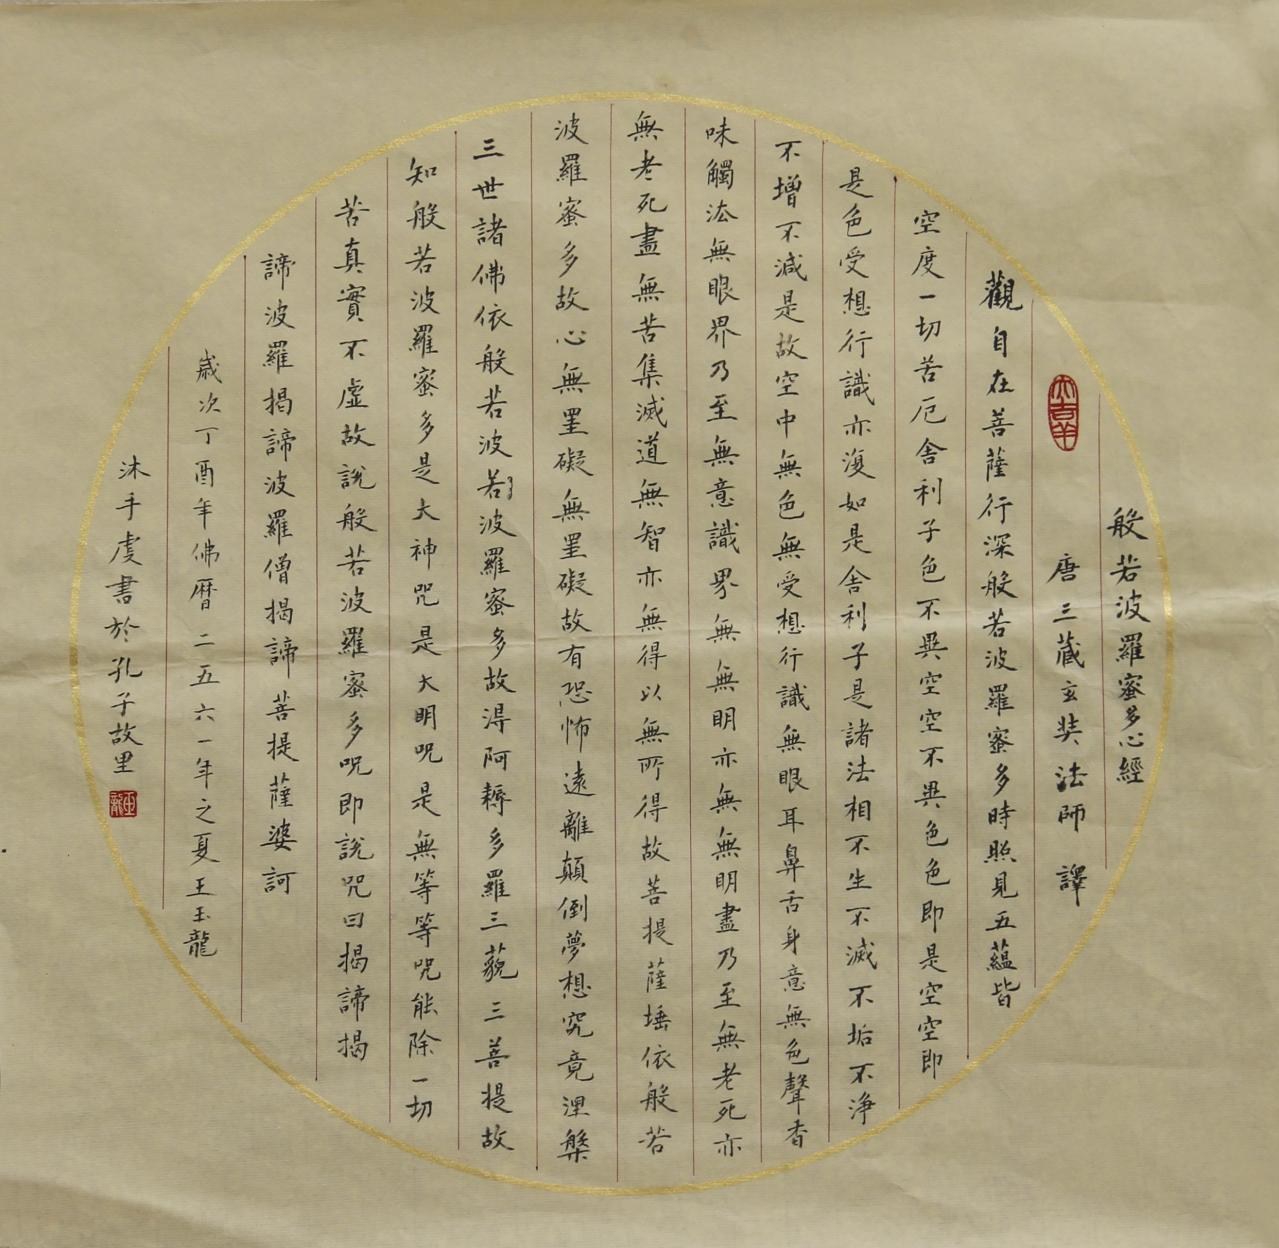 般若波羅蜜多心經
唐三藏玄奘法師 譯
觀自在菩薩行深般若波羅蜜多時照見五蘊皆
空度一切苦厄舍利子色不異空空不異色色即是空空即
是色受想行識亦復如是舍利子是諸法相不生不滅不垢不淨
不增不減是故空中無色無受想行識無眼耳鼻舌身意無色聲香
味觸法無眼界乃至無意識界無無明亦無無明盡乃至無老死亦
無老死盡無苦集滅道無智亦無得以無所得故菩提薩埵依般若
波羅蜜多故心無罣礙無罣礙故有恐怖遠離顛倒夢想究竟涅槃
三世諸佛依般若波若波羅蜜多故得阿耨多羅三藐三菩提故
知般若波羅蜜多是大神咒是大明咒是無等等咒能除一切
苦真實不虛故說般若波羅蜜多咒即說咒曰揭諦揭
諦波羅揭諦波羅僧揭諦菩提薩婆訶
歲次丁酉年佛曆二五六一年之夏王玉龍
沐手虔書於孔子故里